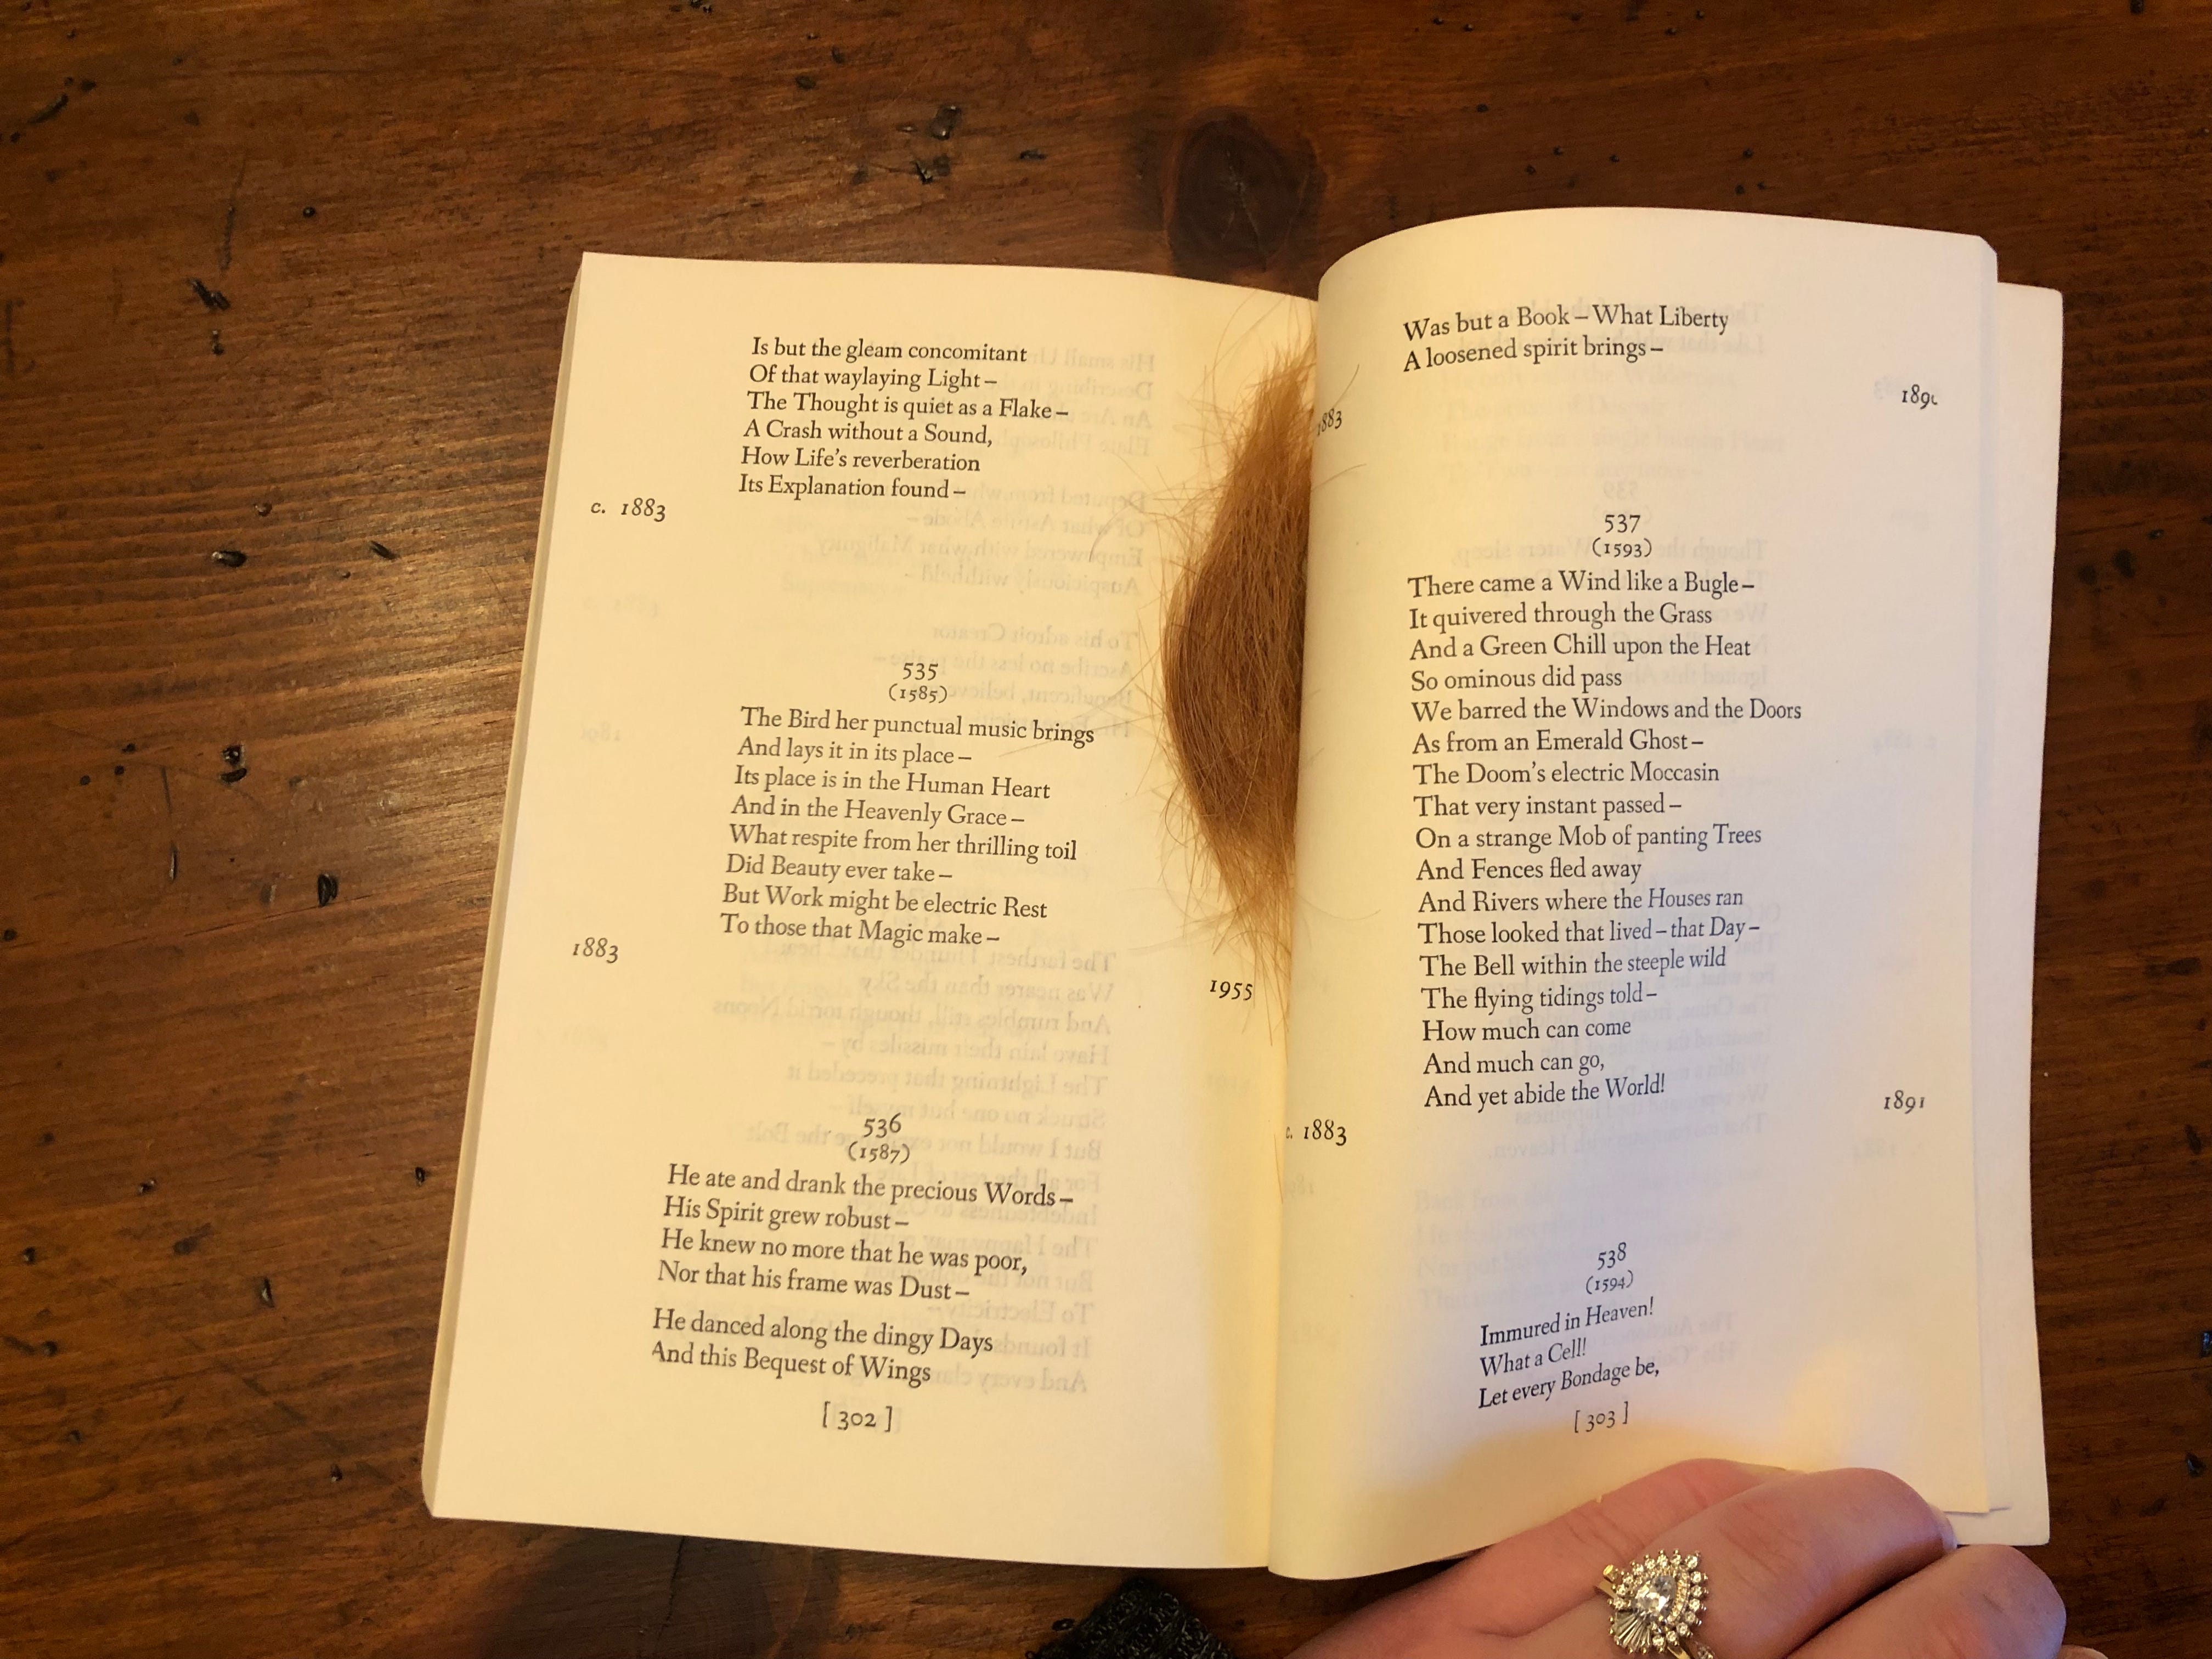 Is but the gleam concomitant
Of that waylaying Light –
The Thought is quiet as a Flake –
A Crash without a Sound,
How Life's reverberation
Its Explanation found –
c. 1883
535
(1585)
The Bird her punctual music brings
And lays it in its place –
Its place is in the Human Heart
And in the Heavenly Grace –
What respite from her thrilling toil
Did Beauty ever take –
But Work might be electric Rest
To those that Magic make –
1883 1955
536
(1587)
He ate and drank the precious Words –
His Spirit grew robust –
He knew no more that he was poor,
Nor that his frame was Dust –
He danced along the dingy Days
And this Bequest of Wings
[ 302 ]
Was but a Book – What Liberty
A loosened spirit brings –
1883
537
(1593)
There came a Wind like a Bugle –
It quivered through the Grass
And a Green Chill upon the Heat
So ominous did pass
We barred the Windows and the Doors
As from an Emerald Ghost –
The Doom's electric Moccasin
That very instant passed –
On a strange Mob of panting Trees
And Fences fled away
And Rivers where the Houses ran
Those looked that lived – that Day –
The Bell within the steeple wild
The flying tidings told –
How much can come
And much can go,
And yet abide the World!
c. 1883 1891
538
(1594)
Immured in Heaven!
What a Cell!
Let every Bondage be,
[ 303 ]